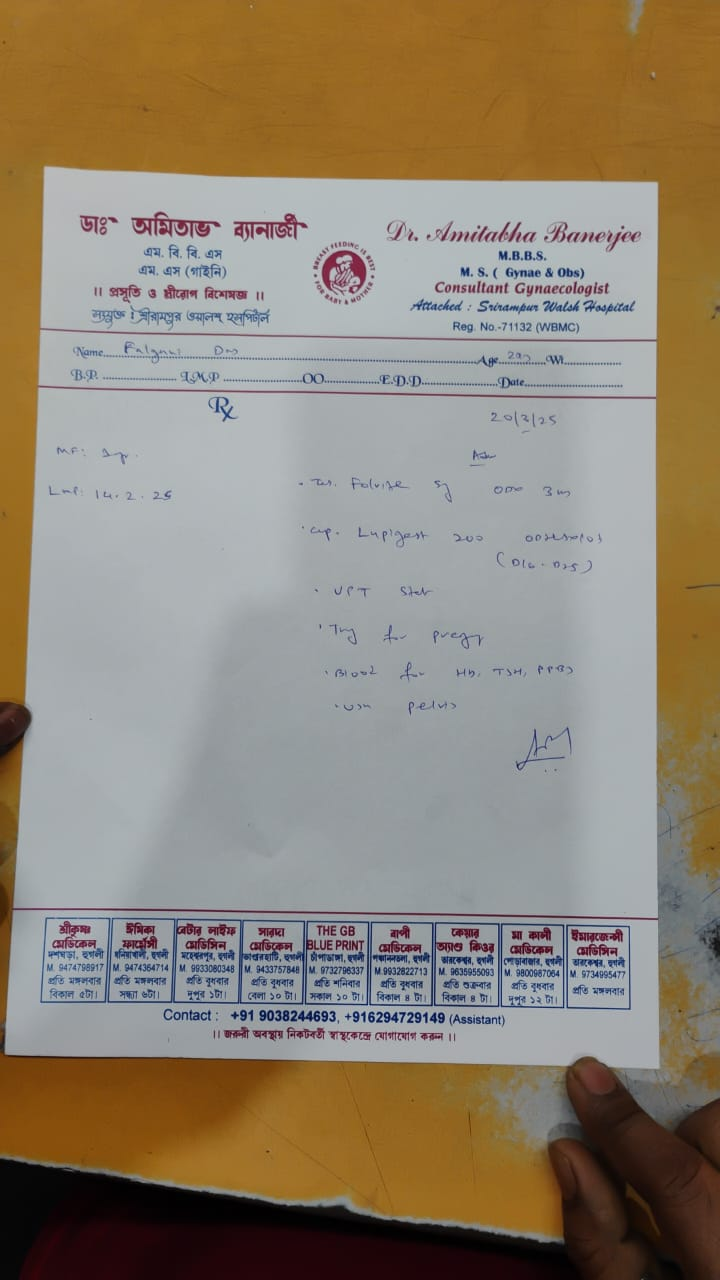 ডাঃ অমিতাভ ব্যানার্জী
এম. বি. বি. এস
এম. এস (গাইনি)
।। প্রসূতি ও স্ত্রীরোগ বিশেষজ্ঞ ।।
সংযুক্ত : শ্রীরামপুর ওয়ালশ হসপিটাল
BREAST FEEDING IS BEST
FOR BABY & MOTHER
Dr. Amitabha Banerjee
M.B.B.S.
M. S. ( Gynae & Obs)
Consultant Gynaecologist
Attached : Srirampur Walsh Hospital
Reg. No.-71132 (WBMC)
Name Falguni Das Age Wt
B.P. L.M.P OO E.D.D Date
Rx
20/3/25
LMP: 14.2.25
Adv
Folvite 5g 3m
Cap. Lupigest 200
(D16-D25)
UPT
Try for
Blood for Hb, TSH, PPBS
USG Pelvis
শ্রীকৃষ্ণ মেডিকেল
দশঘড়া, হুগলী
M. 9474798917
প্রতি মঙ্গলবার
বিকাল ৫টা।
ঈমিকা ফার্মেসী
ধনিয়াখালী, হুগলী
M. 9474364714
প্রতি মঙ্গলবার
সন্ধ্যা ৬টা।
বেটার লাইফ মেডিসিন
মহেশ্বরপুর, হুগলী
M. 9933080348
প্রতি বুধবার
দুপুর ১টা।
সারদা মেডিকেল
ভাণ্ডারহাটি, হুগলী
M. 9433757848
প্রতি বুধবার
বেলা ১০ টা।
THE GB BLUE PRINT
চাঁপাডাঙ্গা, হুগলী
M. 9732796337
প্রতি শনিবার
সকাল ১০ টা।
বাপী মেডিকেল
পঞ্চাননতলা, হুগলী
M.9932822713
প্রতি বুধবার
বিকাল ৪ টা।
কেয়ার অ্যাণ্ড কিওর
তারকেশ্বর, হুগলী
M. 9635955093
প্রতি শুক্রবার
বিকাল ৪ টা।
মা কালী মেডিকেল
পোড়াবাজার, হুগলী
M. 9800987064
প্রতি বুধবার
দুপুর ১২ টা।
ইমারজেন্সী মেডিসিন
তারকেশ্বর, হুগলী
M. 9734995477
প্রতি মঙ্গলবার
Contact : +91 9038244693, +916294729149 (Assistant)
।। জরুরী অবস্থায় নিকটবর্তী স্বাস্থ্যকেন্দ্রে যোগাযোগ করুন ।।